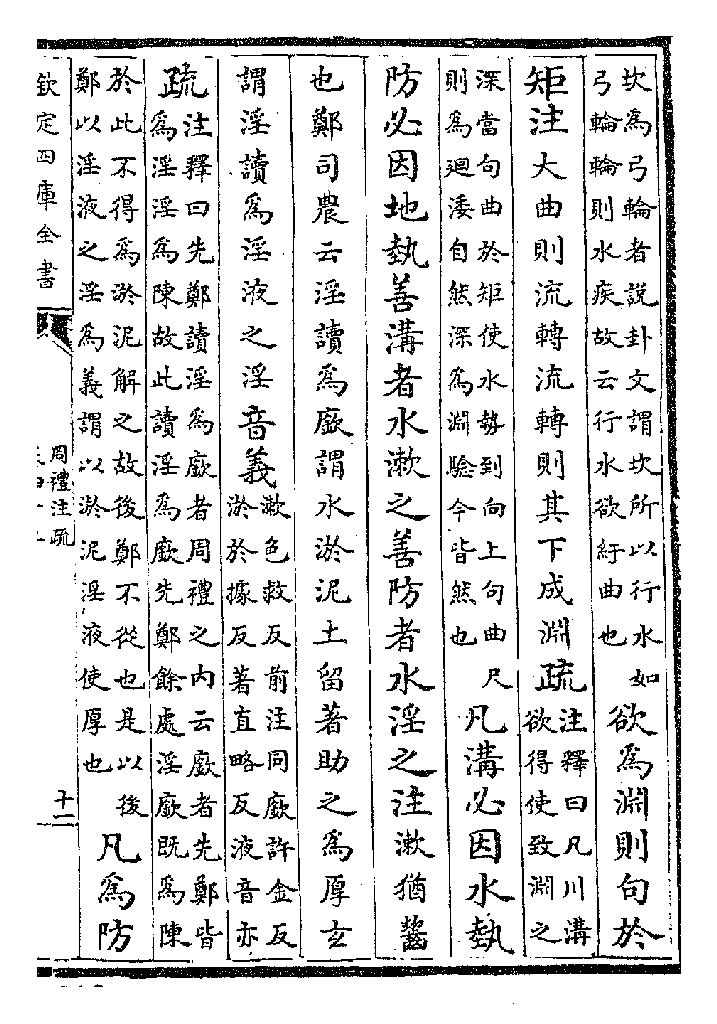 坎為弓輪者說卦文謂坎所以行水如
弓輪輪則水疾故云行水欲紆曲也
欲為淵則句於
矩注大曲則流轉流轉則其下成淵疏
注釋曰凡川溝
欲得使致淵之
深當句曲於矩使水勢到向上句曲尺
則為廻涹自然深為淵驗今皆然也
凡溝必因水埶
防必因地埶善溝者水漱之善防者水淫之注漱猶齧
也鄭司農云淫讀為廞謂水淤泥土留著助之為厚玄
謂淫讀為淫液之淫音義
漱色救反前注同廞許金反
淤於據反著直略反液音亦
疏
注釋曰先鄭讀淫為廞者周禮之內云廞者先鄭皆
為淫淫為陳故此讀淫為廞先鄭餘處淫廞既為陳
於此不得為淤泥解之故後鄭不從也是以後
鄭以淫液之淫為義謂以淤泥淫液使厚也
凡為防
欽定四庫全書
周禮注疏
十二